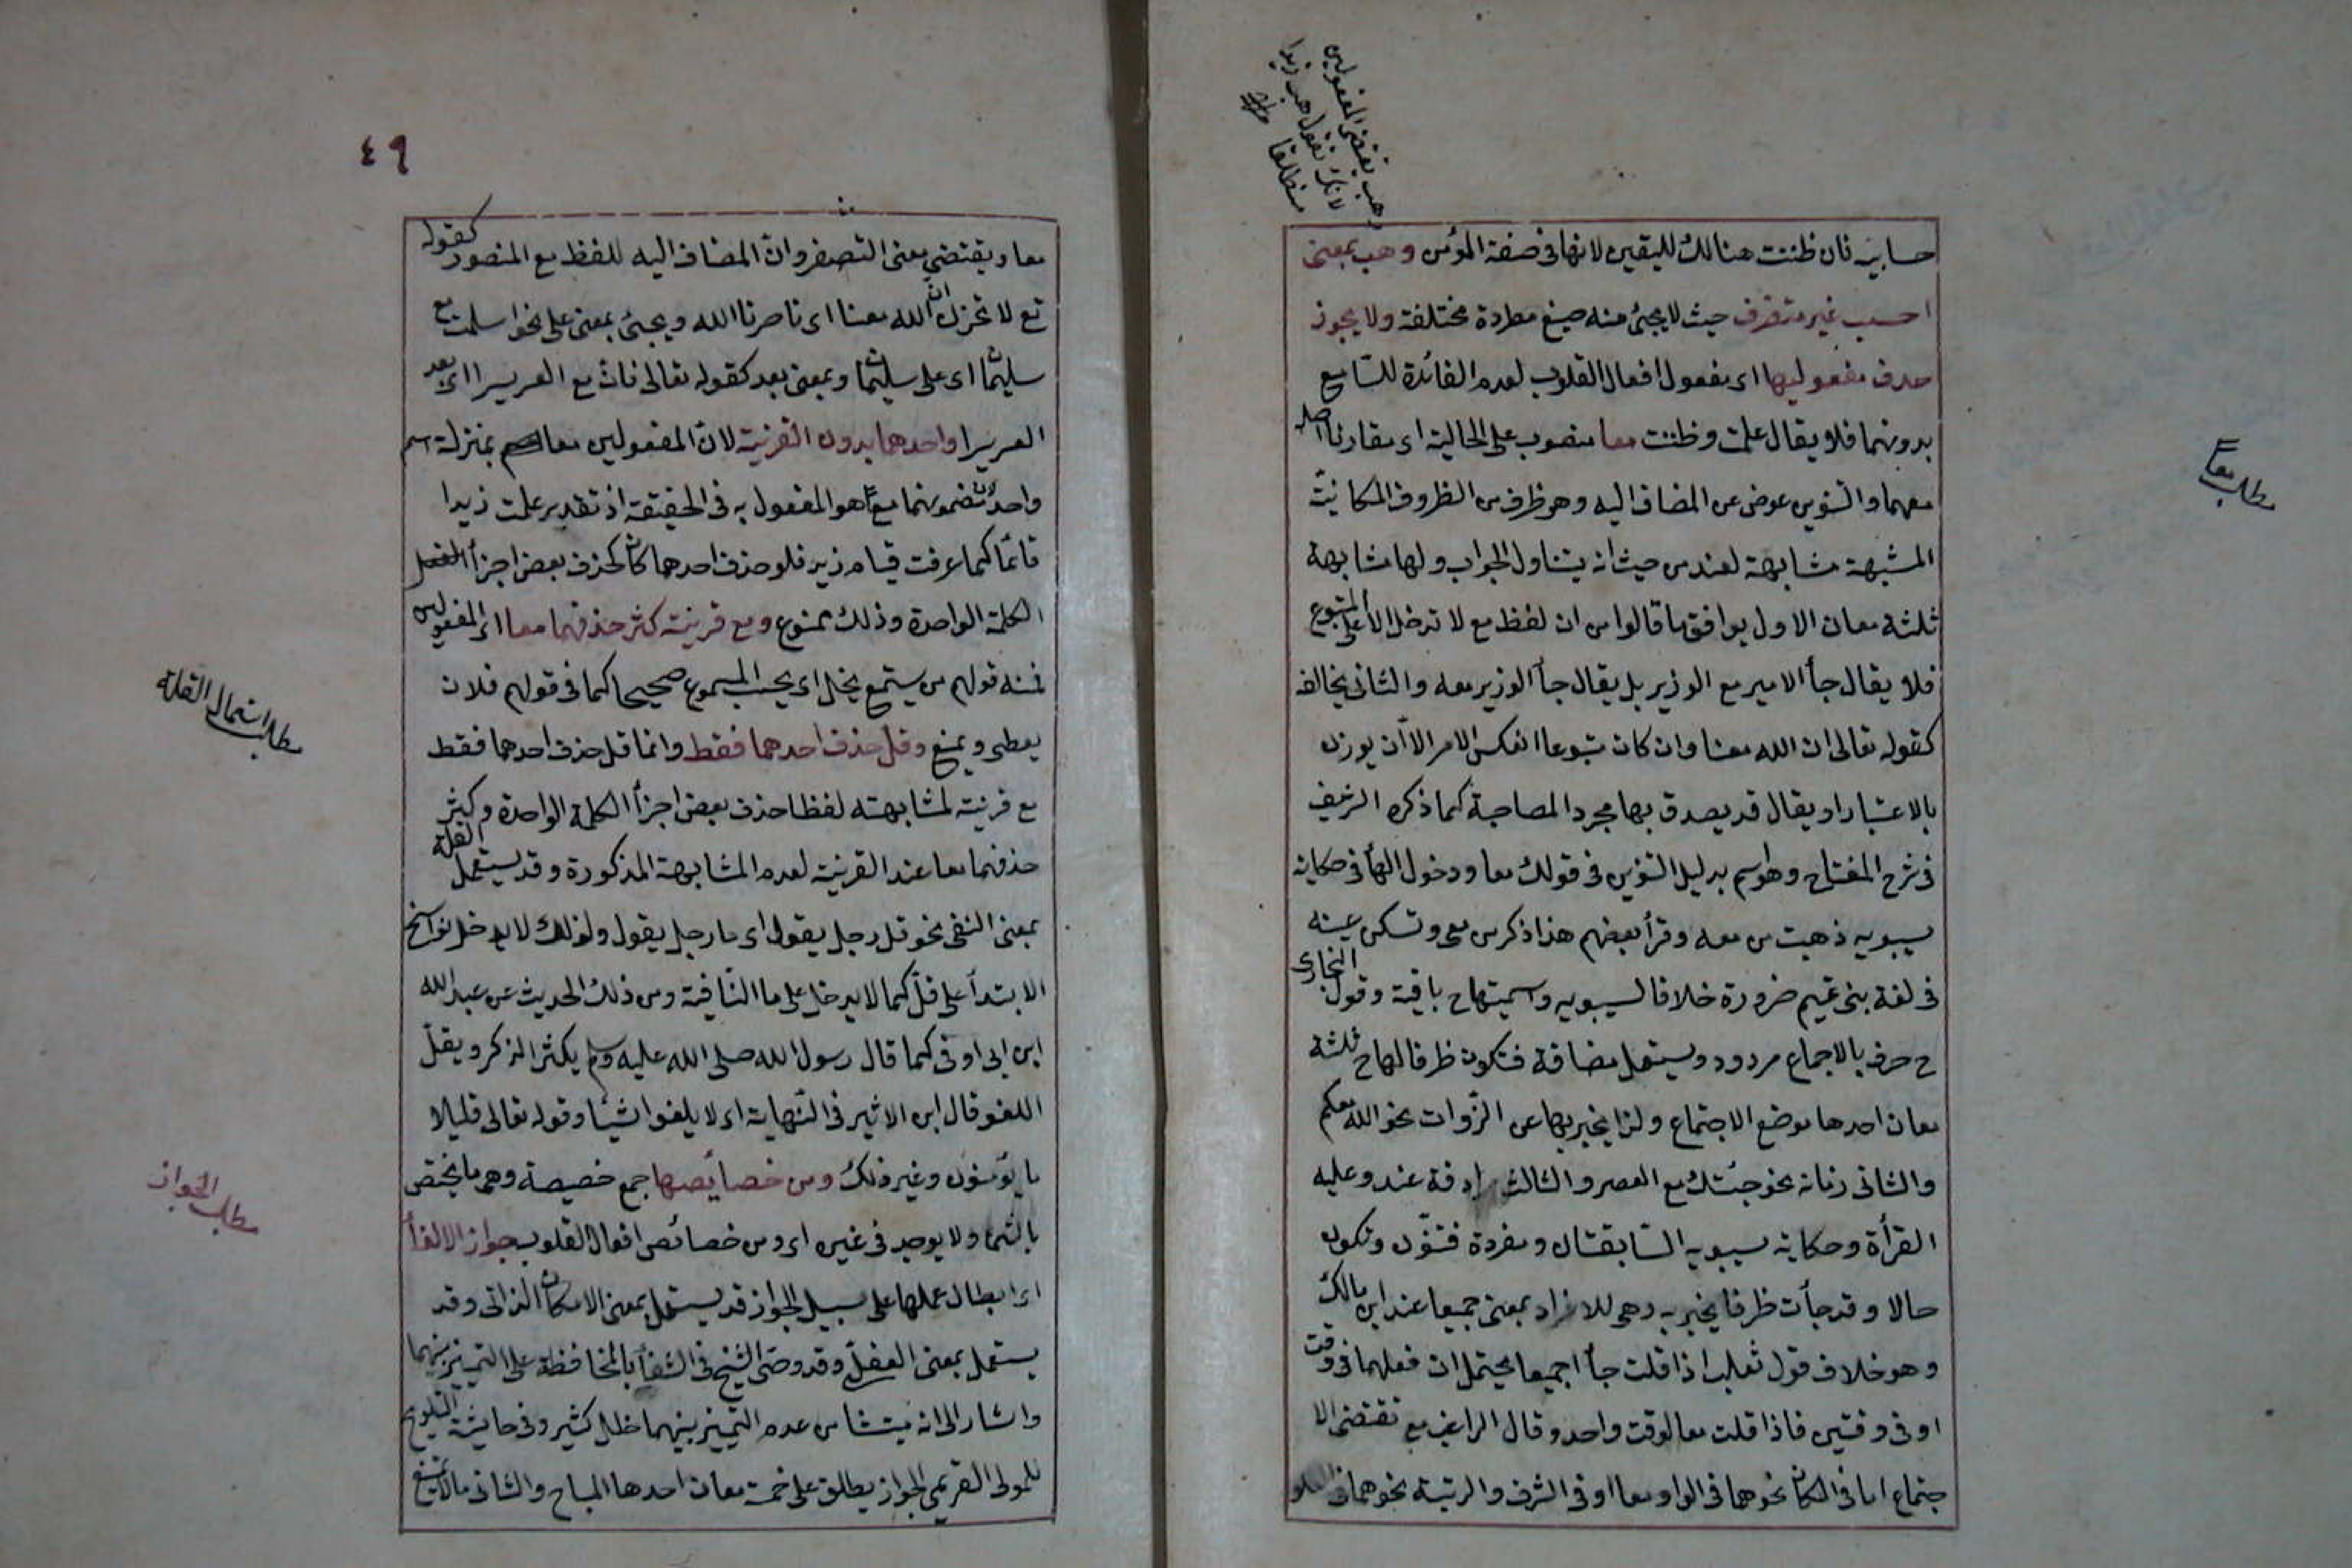 هب يقتضى المفعولين
لانك تقول هب زيدا
منطلقا
حسابيه فان ظننت هنالك لليقين لانها فى صفة المؤمن وهب بمعنى
احسب غير متصرف حيث لا يجئ منه صيغ مطردة مختلفة ولا يجوز
حذف مفعوليها اى مفعول افعال القلوب لعدم الفائدة للسامع
بدونهما فلا يقال علمت وظننت معا منصوب على الحالية اى مقارنا اصله
معهما والتنوين عوض عن المضاف اليه وهو ظرف من الظروف المكانية
المشبهة مشابهة لعند من حيث انه يتناول الجواب ولها مشابهة
ثلثة معان الاول يوافق ما قالوا من ان لفظ مع لا تدخل الا على المتبوع
فلا يقال جأ الامير مع الوزير بل يقال جأ الوزير معه والثانى يخالف
كقوله تعالى ان الله معنا وان كان متبوعا انعكس الامر الا أن يوزن
بالاعتبار او يقال قد يصدق بها مجرد المصاحبة كما ذكره الشريف
فى شرح المفتاح وهو اسم بدليل التنوين فى قولك معا ودخول الهأ فى حكاية
سيبويه ذهبت من معه وقرأ بعضهم هذا ذكر من معى وتسكن عينه
فى لغة بنى تميم ضرورة خلافا لسيبويه واسميتها ح باقية وقول النجارى
ح حرف بالاجماع مردود ويستعمل مضافة فتكون ظرفا لها ح ثلثة
معان احدها موضع الاجتماع ولذا يخبر بها عن الذوات نحو الله معكم
والثانى زمانه نحو جئتك مع العصر والثالث مرادفة عند وعليه
القرأة وحكاية سيبويه السابقتان ومفردة فتنون وتكون
حالا وقد جأت ظرفا يخبر به وهى للافراد بمعنى جميعا عند ابن مالك
وهو خلاف قول ثعلب اذا قلت جأا جميعا يحتمل ان فعلهما فى وقت
او فى وقتين فاذا قلت معا لوقت واحد وقال الراغب مع تقتضى الا
جتماع اما فى المكان نحو هما فى الدار معا او فى الشرف والرتبة نحو هما فى العلو
مطلب معا
٤٩
معا ويقتضى معنى النصر وان المضاف اليه للفظ مع المنصور كقوله
تع لا تحزن ان الله معنا اى ناصرنا الله ويجئ بمعنى على نحو اسلمت مع
سليمان اى على سليمان وبمعنى بعد كقوله تعالى فان مع العسر يسرا اى بعد
العسر يسرا واحدهما بدون القرنية لان المفعولين معا بمنزلة اسم
واحد لان مضمونهما معا هو المفعول به فى الحقيقة اذ تقدير علمت زيدا
قائما كما عرفت قيام زيد فلو حذف احدهما كان كحذف بعض اجزأ
الكلمة الواحدة وذلك ممنوع ومع قرينة كثر حذفهما معا اى المفعولين
فمنه قولهم من يستمع يخل اى يحسب المسموع صحيحا كما فى قولهم فلان
يعطى ويمنع وقل حذف احدهما فقط وانما قل حذف احدهما فقط
مع قرنية لمشابهته لفظا حذف بعض اجزأ الكلمة الواحدة وكثر
حذفهما معا عند القرنية لعدم المشابهة المذكورة وقد يستعمل القلة
بمعنى النفى نحو قل رجل يقول اى ما رجل يقول ولذلك لا يدخل نواسخ
الابتدأ على قل كما لا يدخل على ما النافية ومن ذلك الحديث عن عبد الله
ابن ابى اوفى كما قال رسول الله صلى الله عليه وسلم يكثر الذكر ويقل
اللغو قال ابن الاثير فى النهاية اى لا يلغوا شيئا وقوله تعالى قليلا
ما يؤمنون وغير ذلك ومن خصائصها جمع خصيصة وهى ما يختص
بالشئ ولا يوجد فى غيره اى ومن خصائص افعال القلوب جواز الالغأ
اى ابطال عملها على سبيل الجواز قد يستعمل بمعنى الامكان الذاتى وقد
يستعمل بمعنى العقلى وقد وصى الشيخ فى الشفأ بالمحافظة على التمييز بينهما
واشار الى انه ينشأ من عدم التمييز بينهما خلل كثير وفى حاشية التلويح
للمولى القريمى الجواز يطلق على خمسة معان احدها المباح والثانى ما لا يمتنع
مطلب استعمال القلة
مطلب الجواز